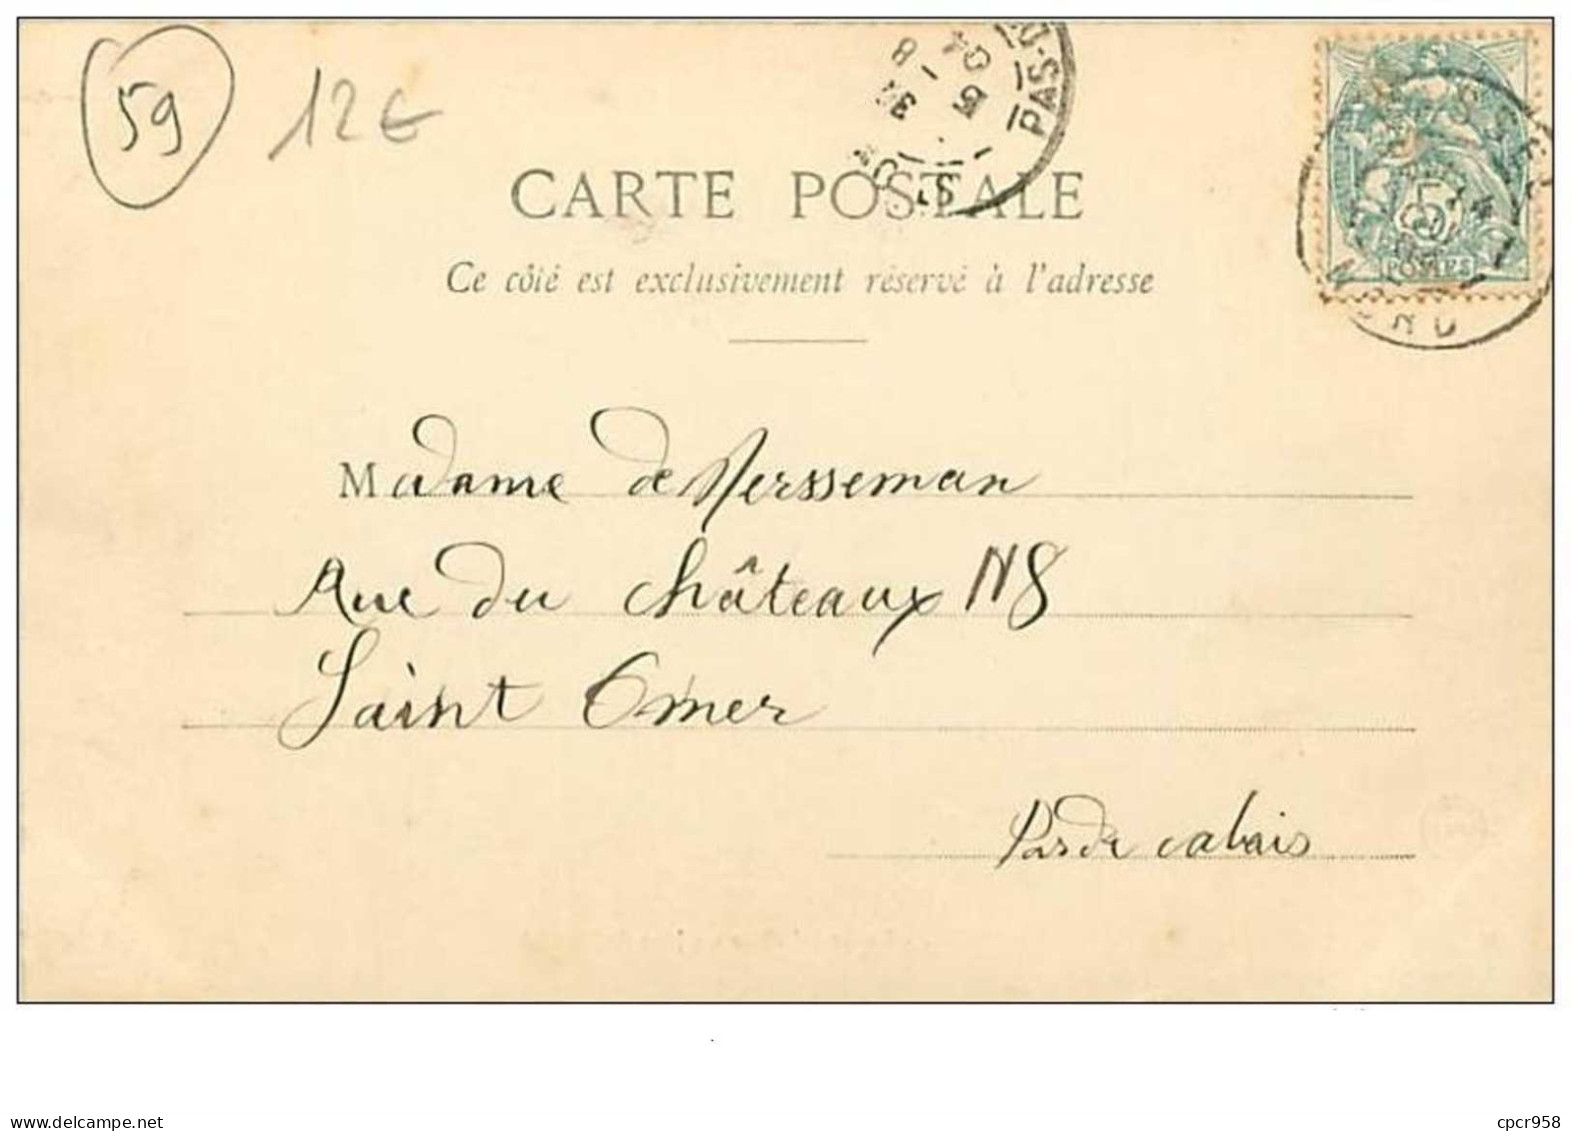 59 12€
PAS-
CARTE POSTALE
Ce côté est exclusivement réservé à l'adresse
5
POSTES
NORD
Madame de Nersseman
Rue du Châteaux N8
Saint Omer
Pas de calais
delcampe.net
cpcr958